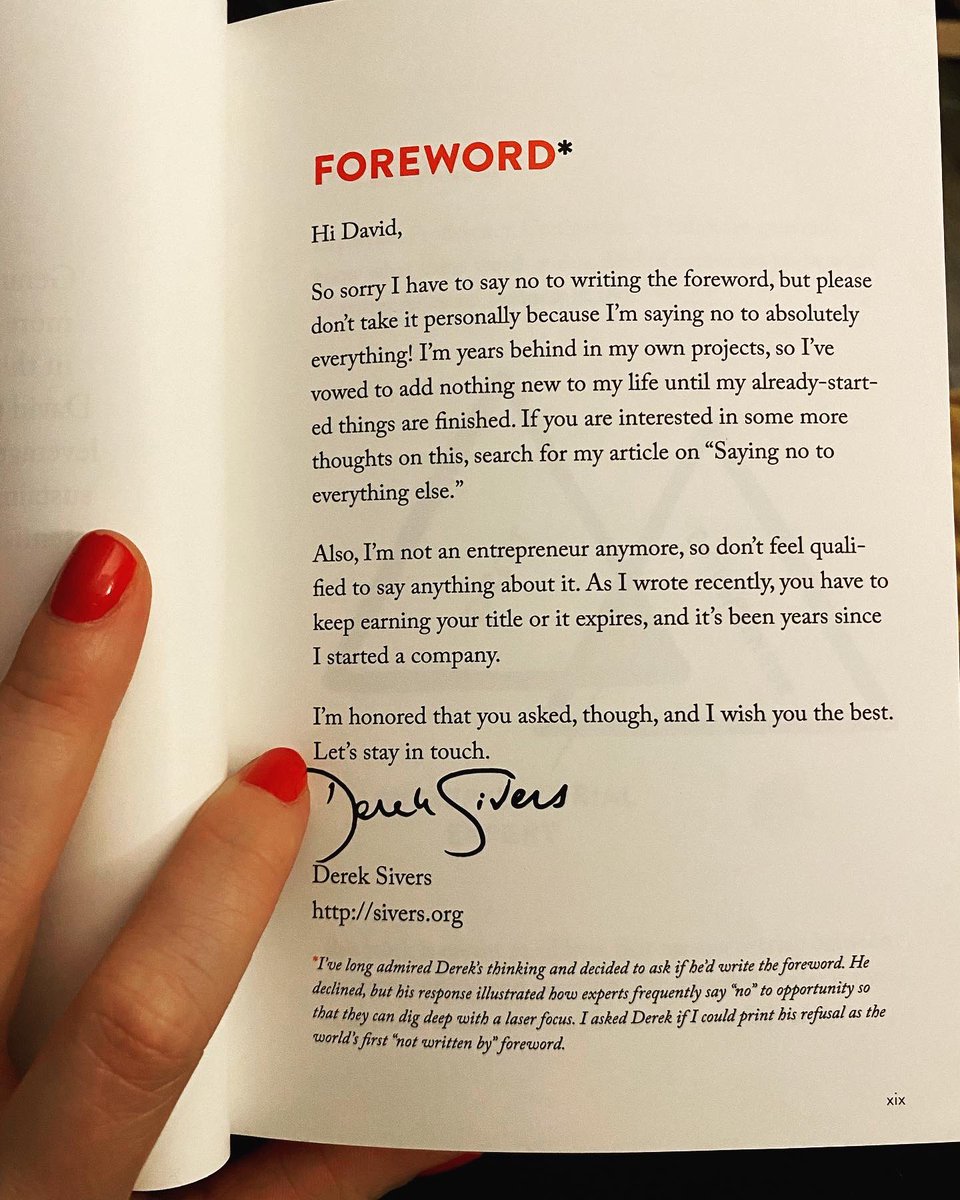 FOREWORD*
Hi David,
So sorry I have to say no to writing the foreword, but please
don't take it personally because I'm saying no to absolutely
everything! I'm years behind in my own projects, so I've
vowed to add nothing new to my life until my already-start-
ed things are finished. If you are interested in some more
thoughts on this, search for my article on “Saying no to
everything else.”
Also, I'm not an entrepreneur anymore, so don't feel quali-
fied to say anything about it. As I wrote recently, you have to
keep earning your title or it expires, and it's been years since
I started a company.
I'm honored that you asked, though, and I wish you the best.
Let's stay in touch.
Derek Sivers
Derek Sivers
http://sivers.org
*I've long admired Derek's thinking and decided to ask if he'd write the foreword. He
declined, but his response illustrated how experts frequently say “no” to opportunity so
that they can dig deep with a laser focus. I asked Derek if I could print his refusal as the
world's first “not written by” foreword.
xix